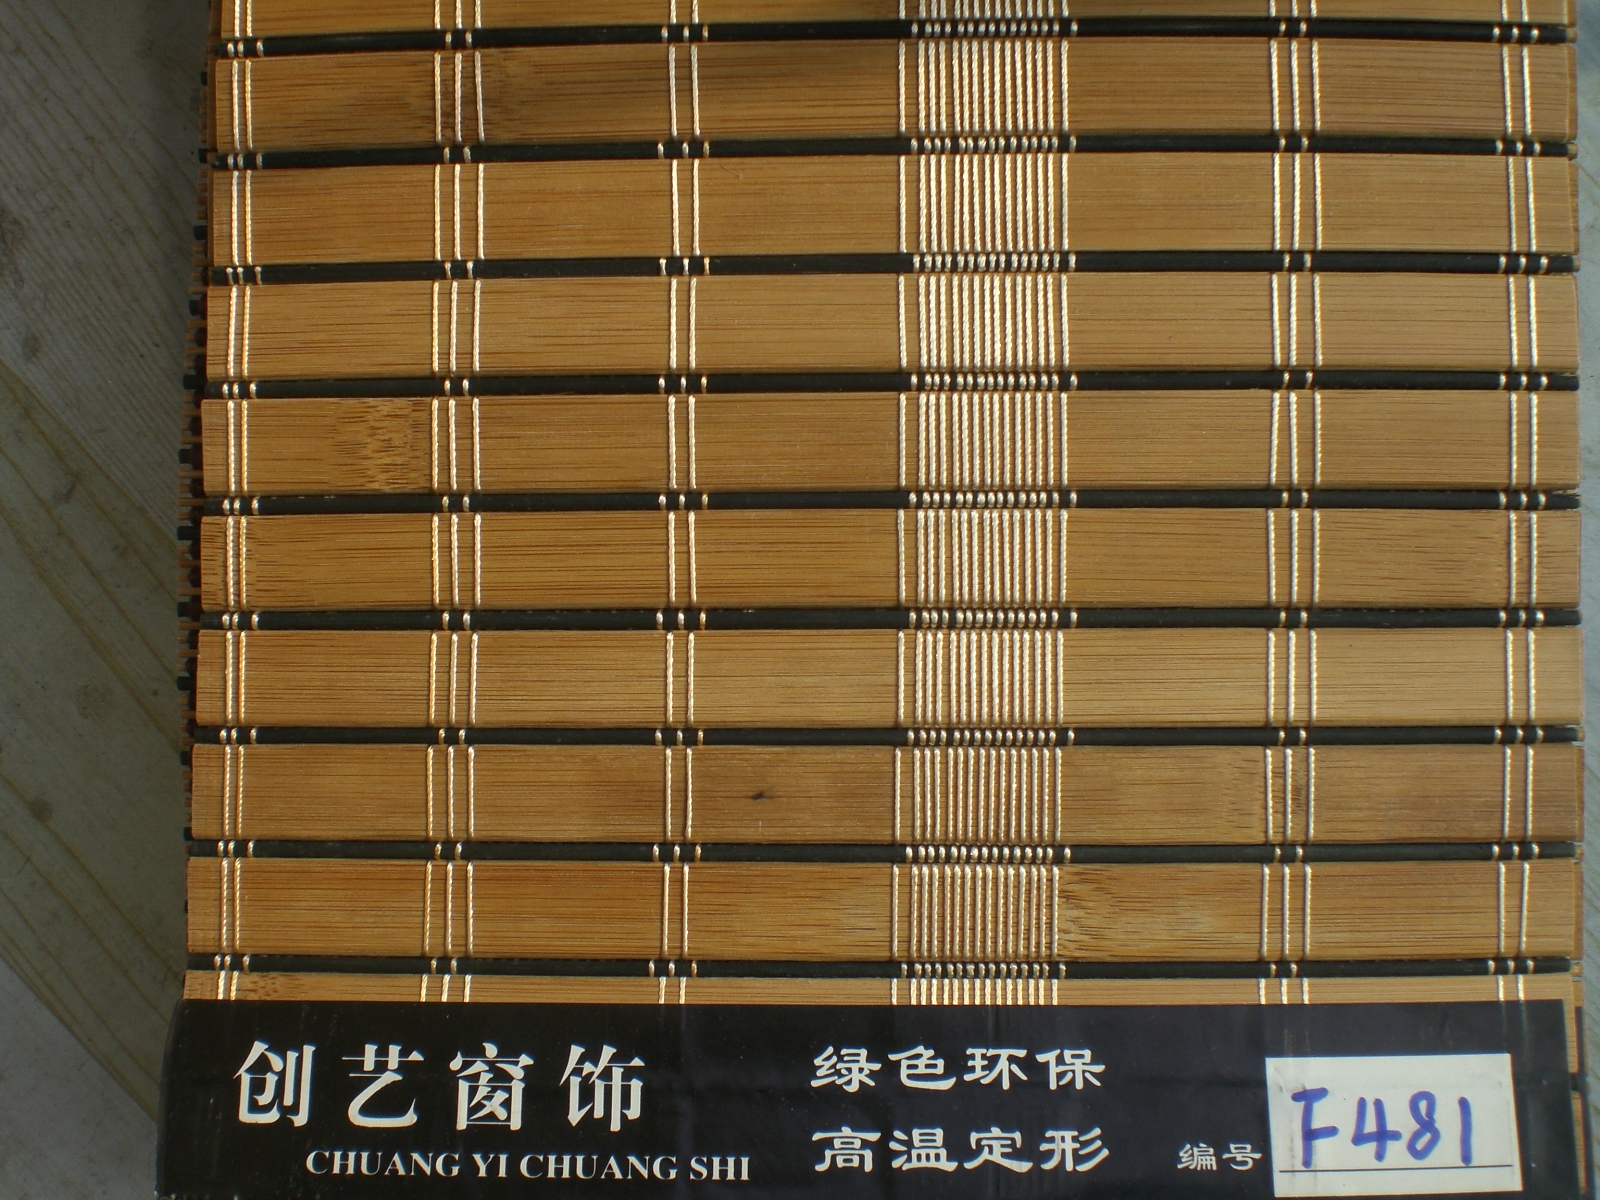 创艺窗饰
CHUANG YI CHUANG SHI
绿色环保
高温定形
编号 F481